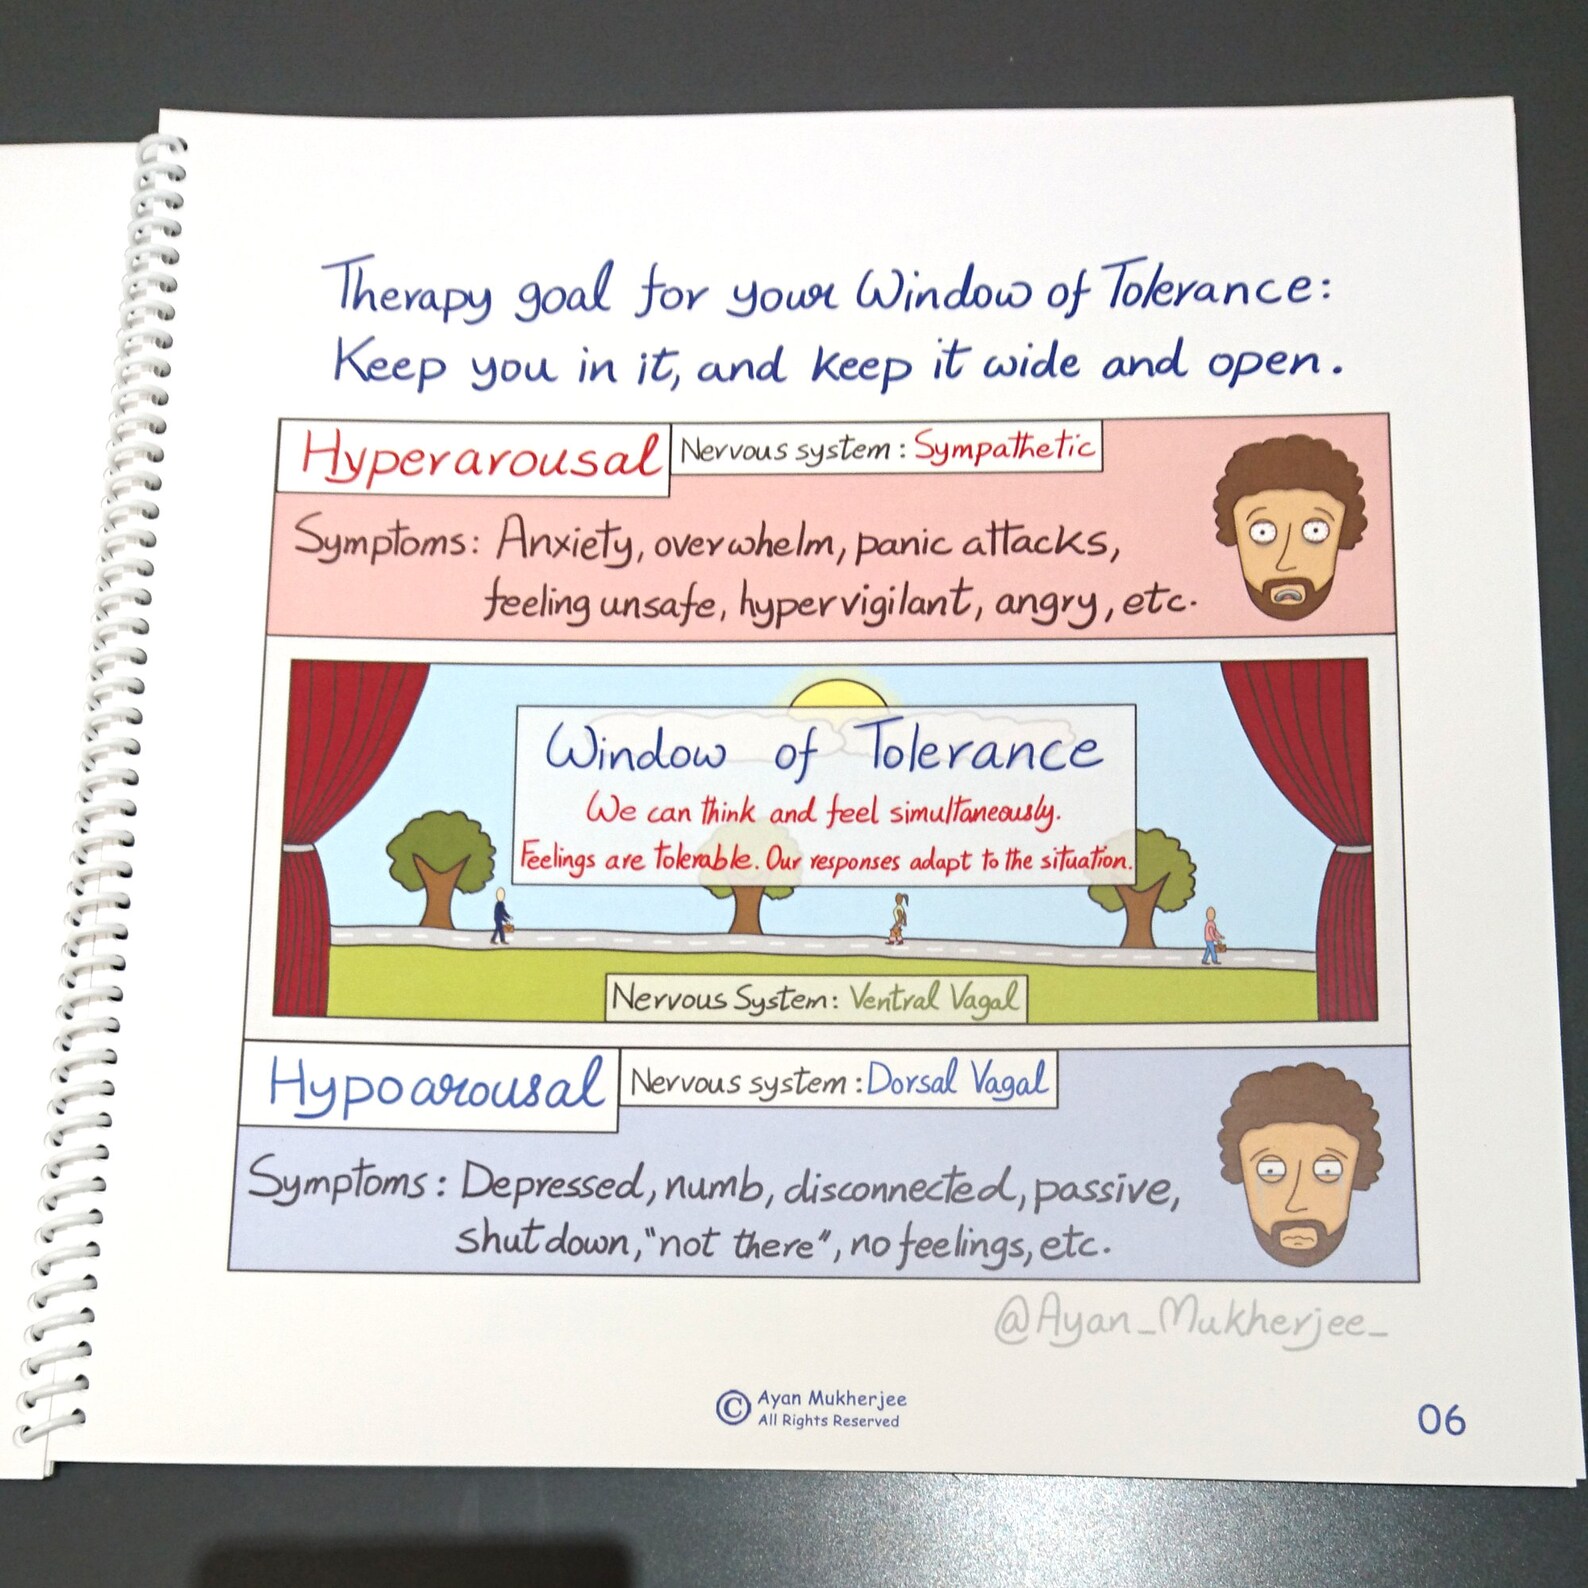 Therapy goal for your Window of Tolerance:
Keep you in it, and keep it wide and open.
Hyperarousal
Nervous system: Sympathetic
Symptoms: Anxiety, overwhelm, panic attacks,
feeling unsafe, hypervigilant, angry, etc.
Window of Tolerance
We can think and feel simultaneously.
Feelings are tolerable. Our responses adapt to the situation.
Nervous System: Ventral Vagal
Hypoarousal
Nervous system: Dorsal Vagal
Symptoms: Depressed, numb, disconnected, passive,
shut down, "not there", no feelings, etc.
@Ayan_Mukherjee_
© Ayan Mukherjee
All Rights Reserved
06